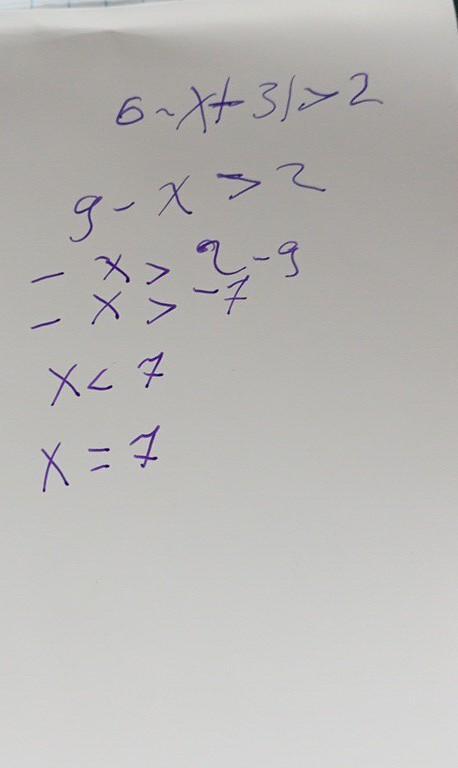 6-x+3|>2
9-x>2
-x>2-9
-x>-7
x<7
x=7